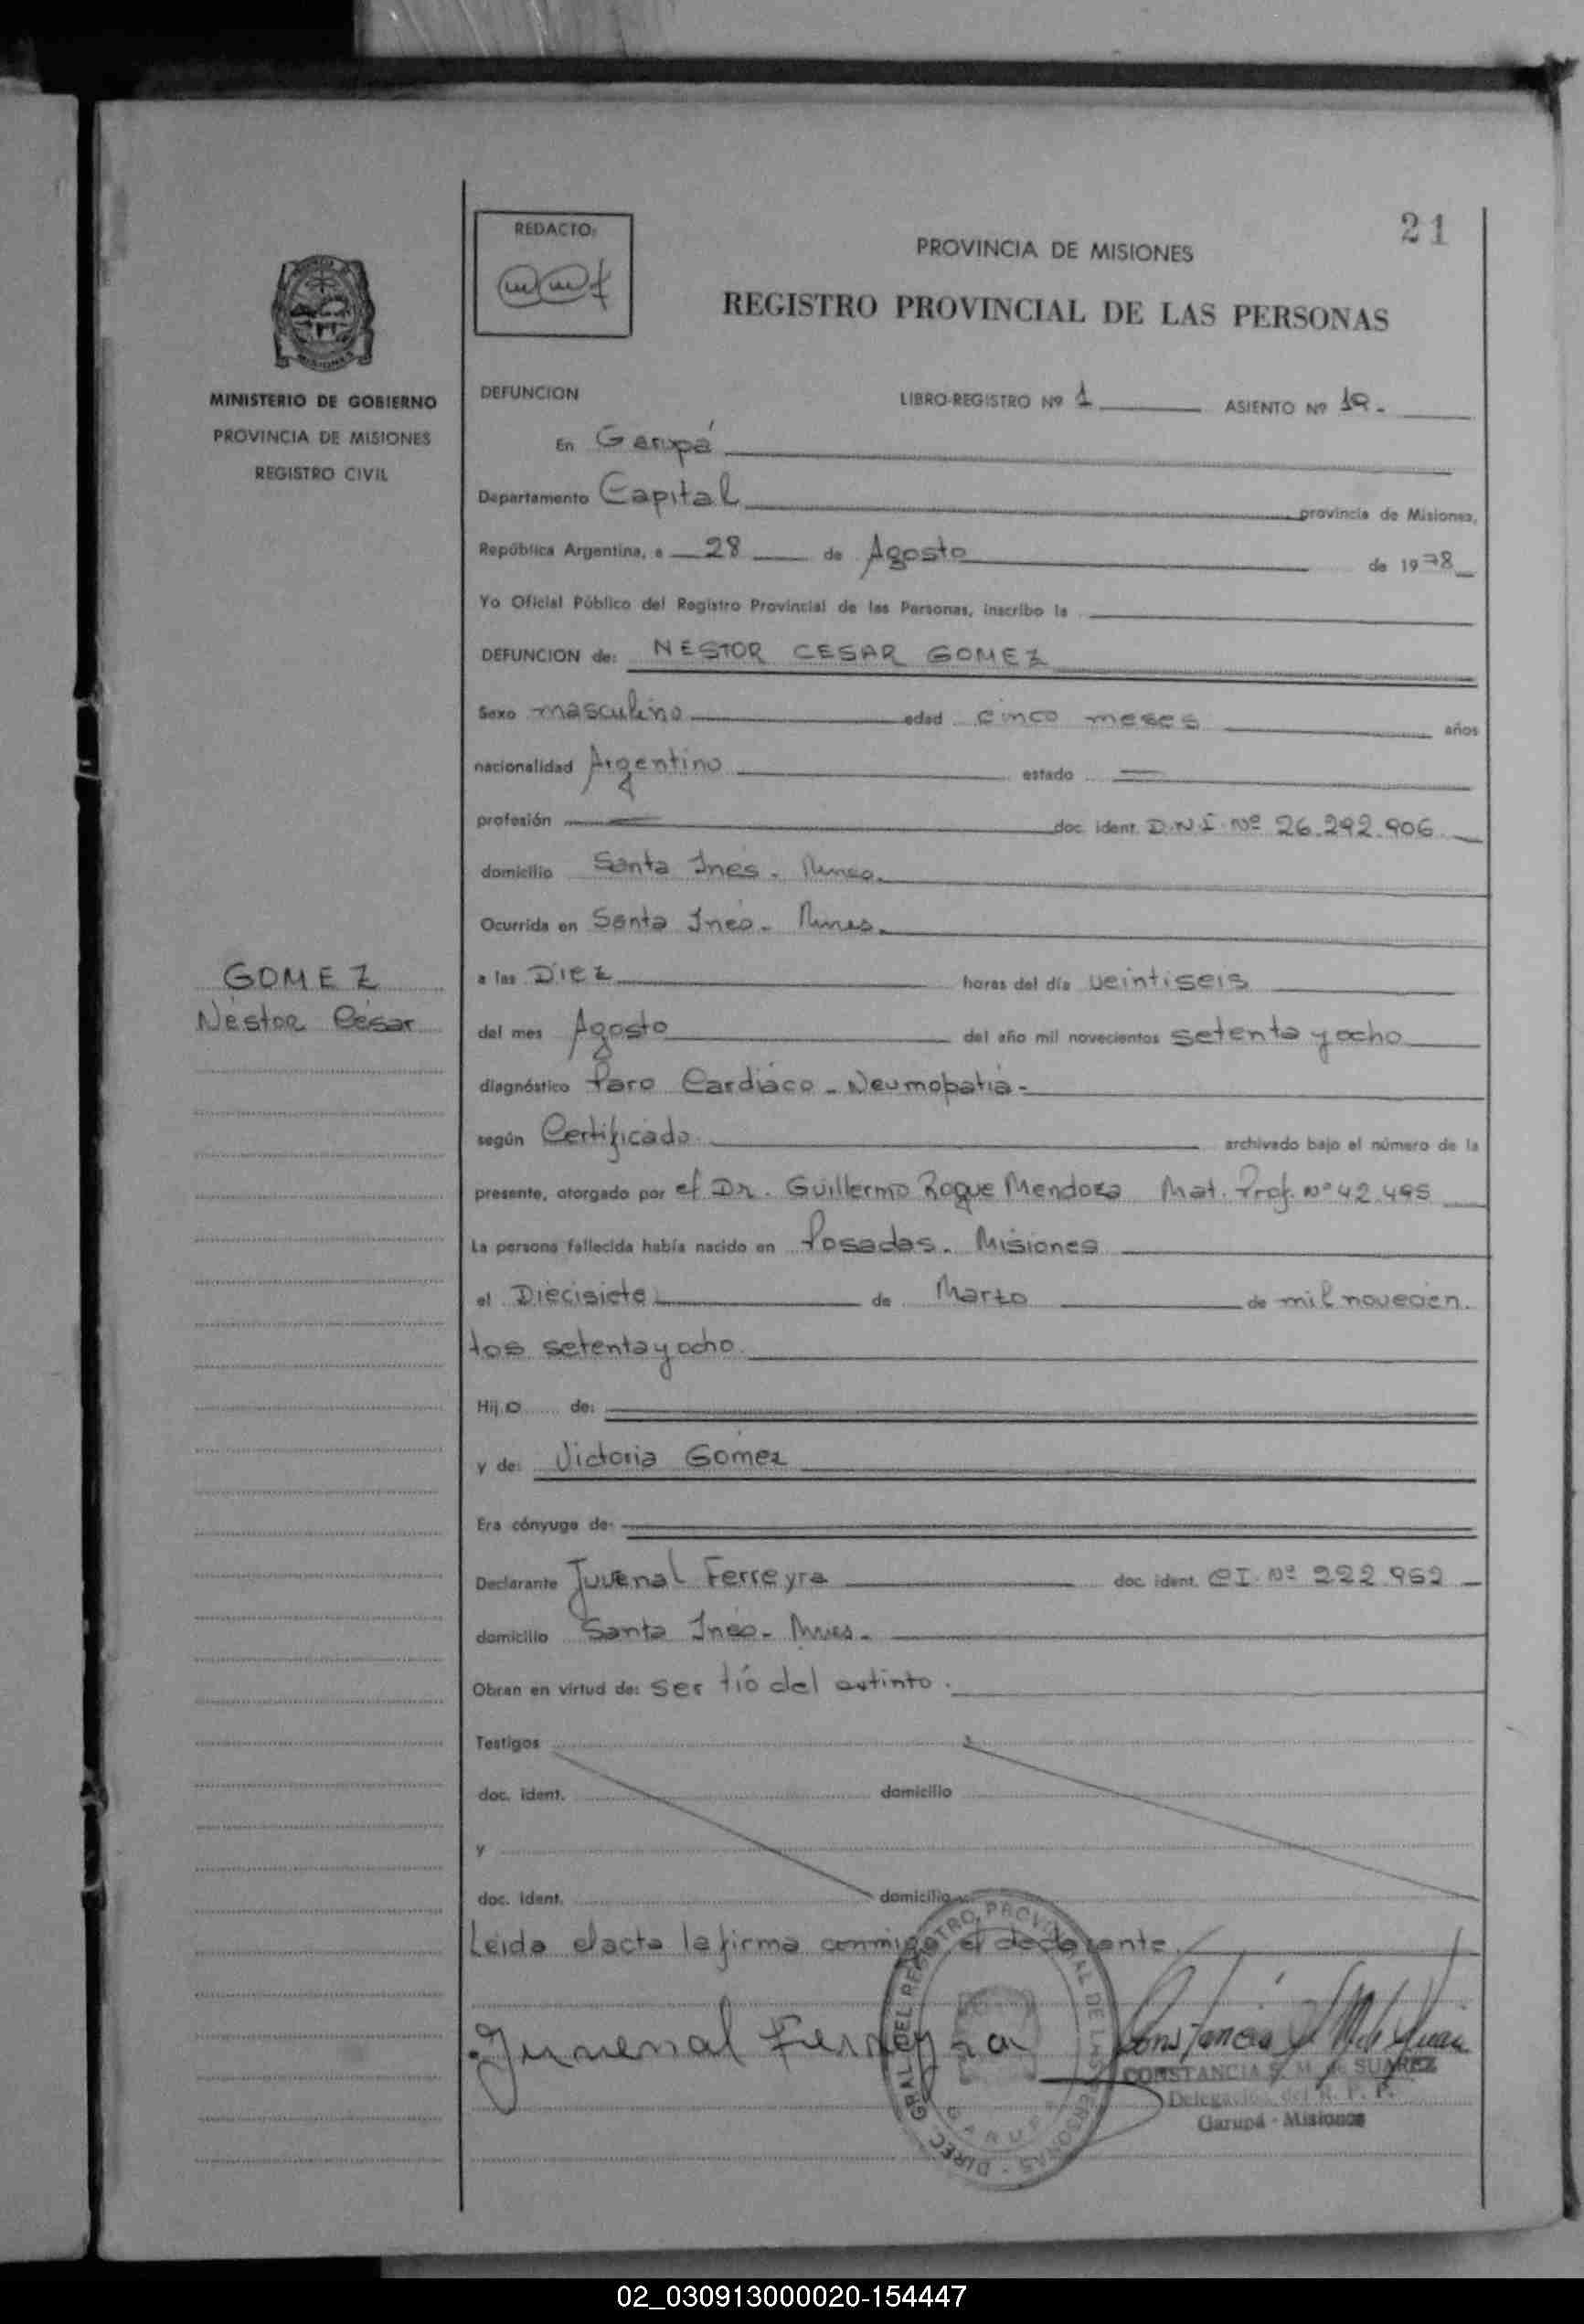 21
REDACTO:
PROVINCIA DE MISIONES
REGISTRO PROVINCIAL DE LAS PERSONAS
MINISTERIO DE GOBIERNO
PROVINCIA DE MISIONES
REGISTRO CIVIL
DEFUNCION LIBRO-REGISTRO Nº 1 ASIENTO Nº 19.-
En Garupá
Departamento Capital provincia de Misiones,
República Argentina, a 28 de Agosto de 1978
Yo Oficial Público del Registro Provincial de las Personas, inscribo la
DEFUNCION de: NESTOR CESAR GOMEZ
Sexo masculino edad cinco meses años
nacionalidad Argentino estado
profesión doc. ident. D.N.I. Nº 26.292.906
domicilio Santa Inés.
Ocurrida en Santa Inés.
GOMEZ
Néstor César
a las Diez horas del día veintiseis
del mes Agosto del año mil novecientos setenta y ocho
diagnóstico Paro Cardiaco - Neumopatia -
según Certificado archivado bajo el número de la
presente, otorgado por el Dr. Guillermo Roque Mendoza Mat. Prof. Nº 42.495
La persona fallecida había nacido en Posadas. Misiones
el Diecisiete de Marzo de mil novecien.
tos setenta y ocho
Hijo de:
y de: Victoria Gomez
Era cónyuge de:
Declarante Juvenal Ferreyra doc. ident. CI. Nº 222.952
domicilio Santa Inés -
Obran en virtud de: ser tío del extinto.
Testigos
doc. ident. domicilio
y
doc. ident. domicilio
Leida elacta la firma conmigo el declarante
Juvenal Ferreyra
DIREC. GRAL. DEL REGISTRO PROVINCIAL DE LAS PERSONAS
GARUPA
CONSTANCIA S. M. de SUAREZ
Delegación del R. P. P.
Garupá - Misiones
02_030913000020-154447